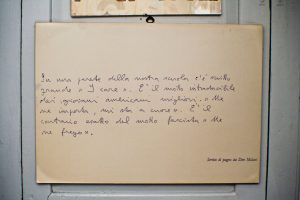 Su una parete della nostra scuola c'è scritto
grande « I care ». È il motto intraducibile
dei giovani americani migliori. « Me
ne importa, mi sta a cuore ». È il
contrario esatto del motto fascista « Me
ne frego ».
Scritto di pugno da Don Milani